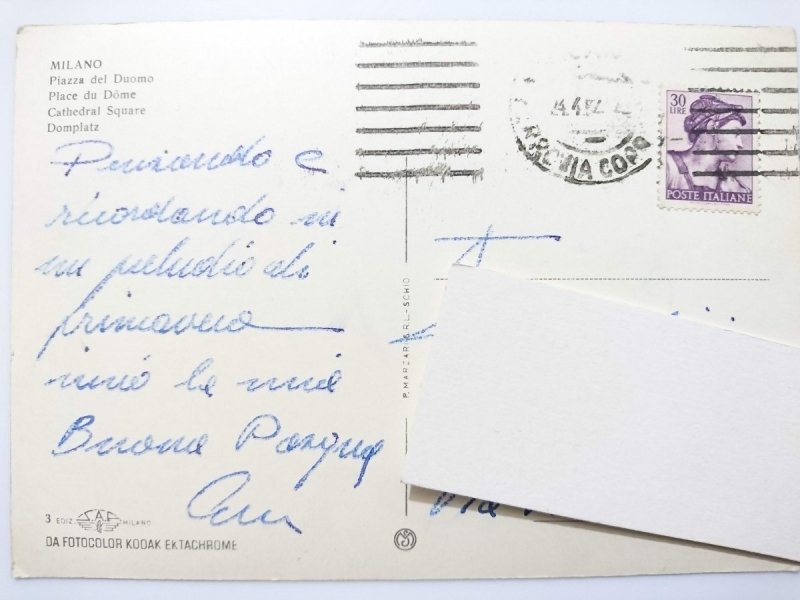 MILANO
Piazza del Duomo
Place du Dôme
Cathedral Square
Domplatz
Pensando e
ricordando in
un preludio di
primavera
invio la mia
Buona Pasqua
30
LIRE
POSTE ITALIANE
P. MARZARI S.R.L.-SCHIO
Via
3 EDIZ. SAF MILANO
DA FOTOCOLOR KODAK EKTACHROME